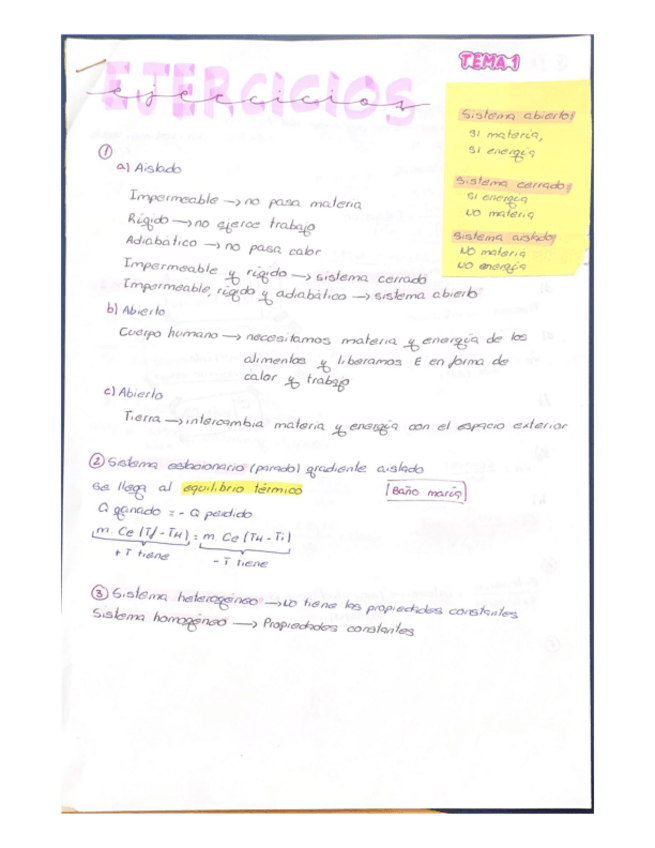 TEMA 1
EJERCICIOS
ejercicios
Sistema abierto
SI materia,
SI energía
Sistema cerrado
SI energía
NO materia
Sistema aislado
NO materia
NO energía
①
a) Aislado
Impermeable → no pasa materia
Rígido → no ejerce trabajo
Adiabático → no pasa calor
Impermeable y rígido → sistema cerrado
Impermeable, rígido y adiabático → sistema abierto
b) Abierto
Cuerpo humano → necesitamos materia y energía de los
alimentos y liberamos E en forma de
calor y trabajo
c) Abierto
Tierra → intercambia materia y energía con el espacio exterior
② Sistema estacionario (parado) gradiente aislado
se llega al equilibrio térmico
Baño maría
Q ganado = - Q perdido
m. Ce (Tf - TH) = m. Ce (TH - Ti)
+ T tiene
- T tiene
③ Sistema heterogéneo → No tiene las propiedades constantes
Sistema homogéneo → Propiedades constantes